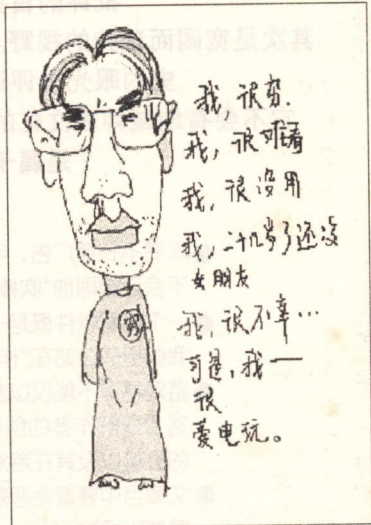 我 很穷.
我, 很难看
我, 很没用
我, 二十几岁了还没
女朋友
我, 很不幸…
可是, 我——
很
爱电玩。